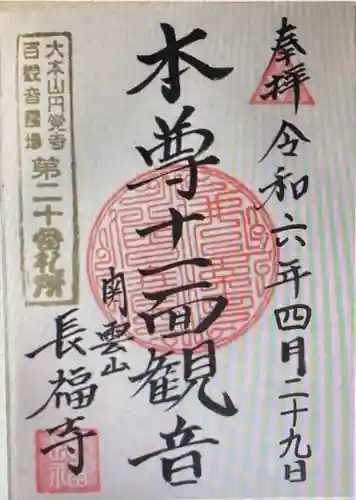 奉拝
令和六年四月二十九日
本尊十一面観音
南雲山
長福寺
大本山円覚寺
百観音霊場
第二十番札所